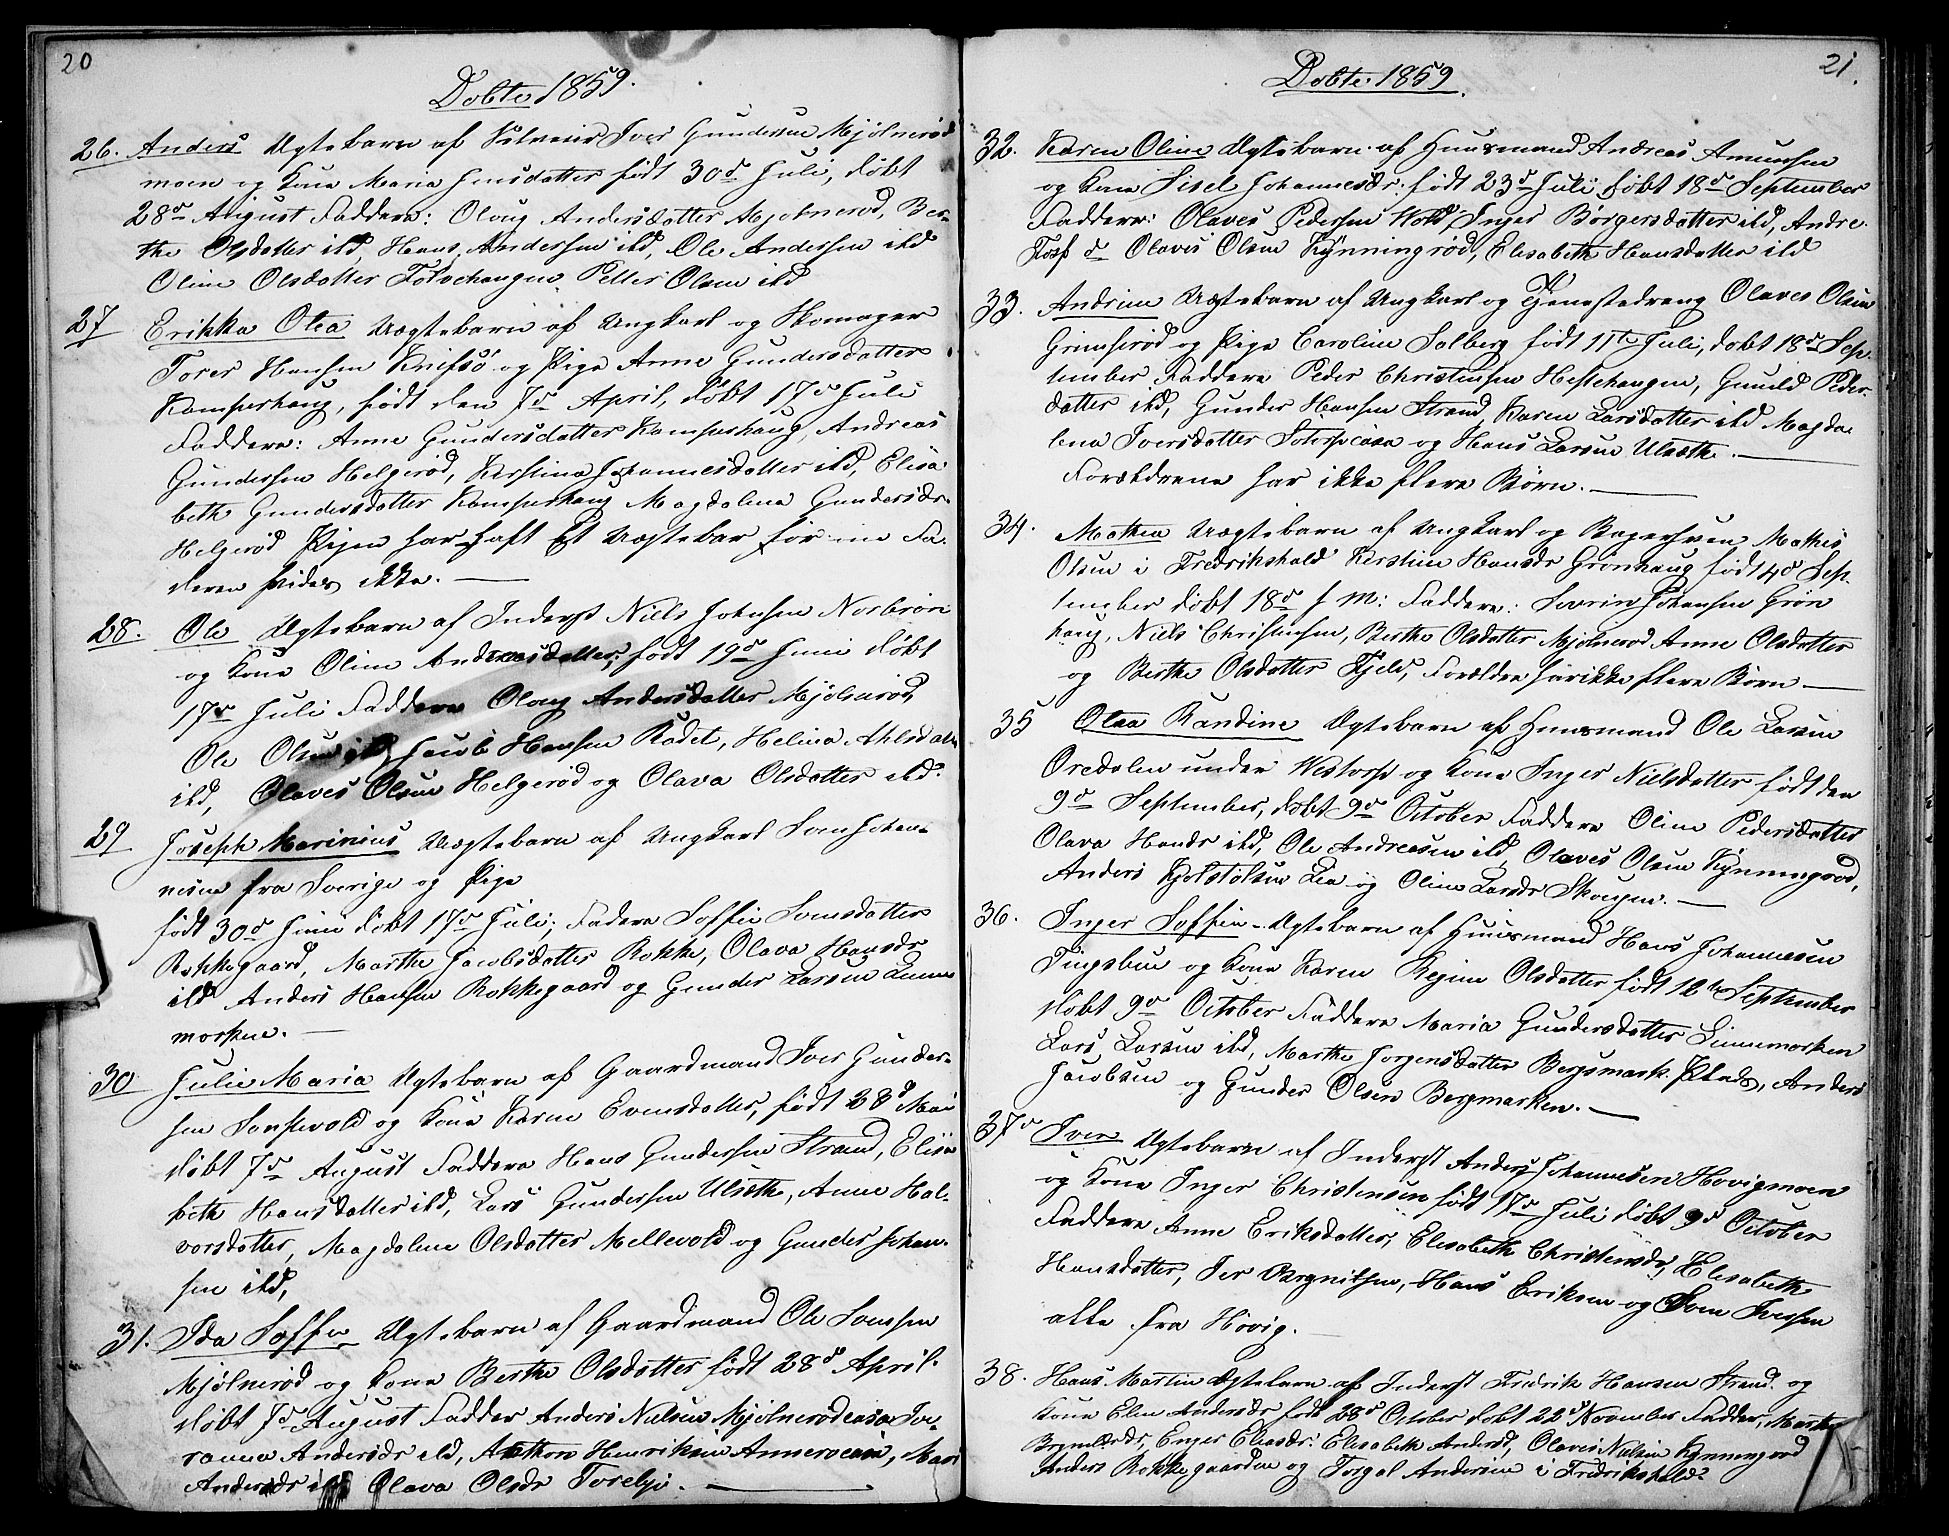 20
Dobte 1859.
26. Anders Ægtebarn af Iver Gundersen Mjølnerød
moen og Kone Maria Jensdatter født 30d Juli, døbt
28de August Faddere: Oloug Andersdatter Mjølnerød, Ber-
the Olsdatter ibd, Hans Andersen ibd, Ole Andersen ibd
Oline Olsdatter Petter Olsen ibd
27 Erikka Olea Uægtebarn af Ungkarl og Skomager
Torer Hansen Knifsö og Pige Anne Gundersdatter
Kamperhaug, født den 7de April, døbt 17de Juli
Faddere: Anne Gundersdatter Kamperhaug, Andreas
Gundersen Helgerød, Kerstine Johannesdatter ibd, Elisa
beth Gundersdatter Kamperhaug Magdalena Gundersdr.
Helgerød Pigen har haft Et Uægtebar før Fa-
deren vides ikke.
28. Ole Ægtebarn af Inderst Niels Johnsen Norbrøn
og Kone Oline Andreasdatter, født 19de Juni døbt
17de Juli Faddere Oloug Andersdatter Mjølnerød,
Ole Olsen ibd, Jacob Hansen Rødet, Helena
ibd, Olaves Olsen Helgerød og Olava Olsdatter ibd.
29 Joseph Marinius Uægtebarn af Ungkarl Sven Johan-
nesen fra Sverige og Pige
født 30d Juni døbt 17de Juli, Faddere Soffie Svensdatter
Rokkegaard, Marthe Jacobsdatter Rokke, Olava Hansdr
ibd Anders Hansen Rokkegaard og Gunder Larsen Linne
morken.
30 Julie Maria Ægtebarn af Gaardmand Iver Gunder-
sen og Kone Karen Evensdatter, født 28d Mai
døbt 7de August Faddere Hans Gundersen Strand, Elisa
beth Hansdatter ibd, Lars Gundersen Ulsæth, Anne Hal-
vorsdatter, Magdalene Olsdatter Mellevold og Gunder Johan-
sen ibd,
31. Ida Soffie Ægtebarn af Gaardmand Ole Svensen
Mjølnerød og Kone Berthe Olsdatter født 28d April.
døbt 7de August Fadder Anders Nielsen
Andersdr ibd, Henriksen
Andersdr Olava Olsdr
21.
Døbte 1859.
32. Karen Oline Ægtebarn af Huusmand Andreas Amundsen
og Kone Sisel Johannesdr. født 23de Juli døbt 18de September
Faddere: Olaves Pedersen Wold, Inger Børgersdatter ibd, Andre.
Olaves Olsen Kynningrød, Elisabeth Hansdatter ibd
33. Andrine Uægtebarn af Ungkarl og Tjenestedreng Olaves Olsen
Grimsrød og Pige Caroline Solberg født 11te Juli, døbt 18de Sep-
tember Faddere Peder Christensen Hestehaugen, Gunild Peder-
datter ibd, Gunder Hansen Strand, Karen Larsdatter ibd Magda-
lena Iversdatter og Hans Larsen Ulsæth.
Forældrene har ikke flere Børn.
34. Mathea Uægtebarn af Ungkarl og Bagersven Mathis
Olsen i Fredrikshald Kerstine Hansdr Grönhaug født 4d Sep-
tember døbt 18de s M: Faddere: Severin Johansen Grøn
haug, Niels Christensen, Berthe Olsdatter Mjølnerød Anne Olsdatter
og Berthe Olsdatter Fjeld, Forældre har ikke flere Børn
35 Olea Randine Ægtebarn af Huusmand Ole Larsen
Oredalen under Westorp og Kone Inger Nielsdatter født den
9de September, døbt 9de October Faddere Oline Pedersdatter
Olava Hansdr ibd, Ole Andreasen ibd, Olaves Olsen Kynningrød,
Anders Kjølstolsen Lie og Oline Larsdr Skougen.
36. Inger Soffie Ægtebarn af Huusmand Hans Johannesen
Tingsbue og Kone Karen Regine Olsdatter født 12te September
døbt 9de October Faddere Maria Gundersdatter Linnemorken
Lars Larsen ibd, Marthe Jørgensdatter Bergsmark. Plads, Anders
Jacobsen og Gunder Olsen Bergmarken.
37 Iver Ægtebarn af Inderst Anders Johannesen Hovigmoen
og Kone Inger Christensen født 17de Juli døbt 9de October
Faddere Anne Eriksdatter, Elisabeth Christensdr, Elisabeth
Hansdatter, Iver Hans Eriksen og Sven Iversen
alle fra Høvig.
38. Hans Martin Ægtebarn af Inderst Fredrik Hansen Strand og
Kone Elen Andersdr født 28de October døbt 22de November Fadder, Marthe
Elisabeth Andersd, Olaves Nielsen Kynningrød
Anders Rokkegaarden og Torgal Andersen i Fredrikshald.